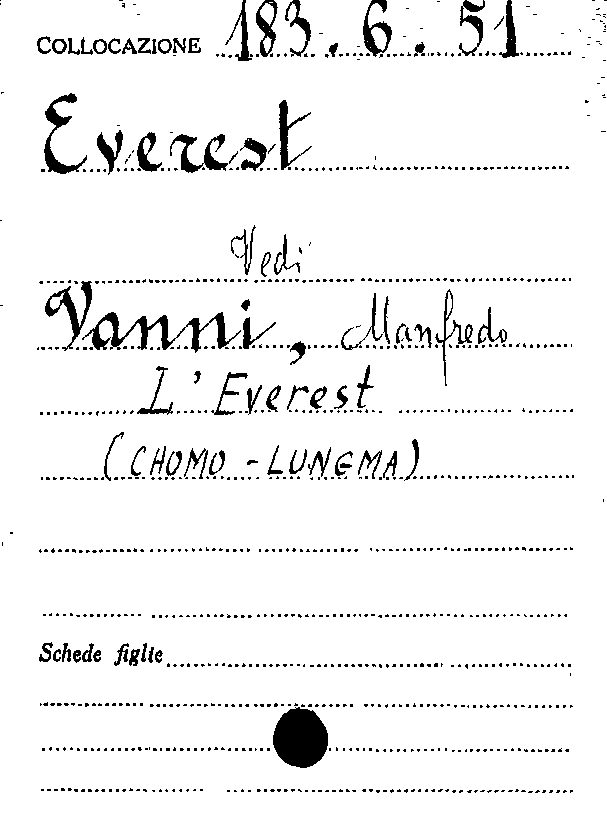 COLLOCAZIONE 183.6.51
Everest
Vedi
Vanni, Manfredo
L'Everest
(CHOMO-LUNGMA)
Schede figlie